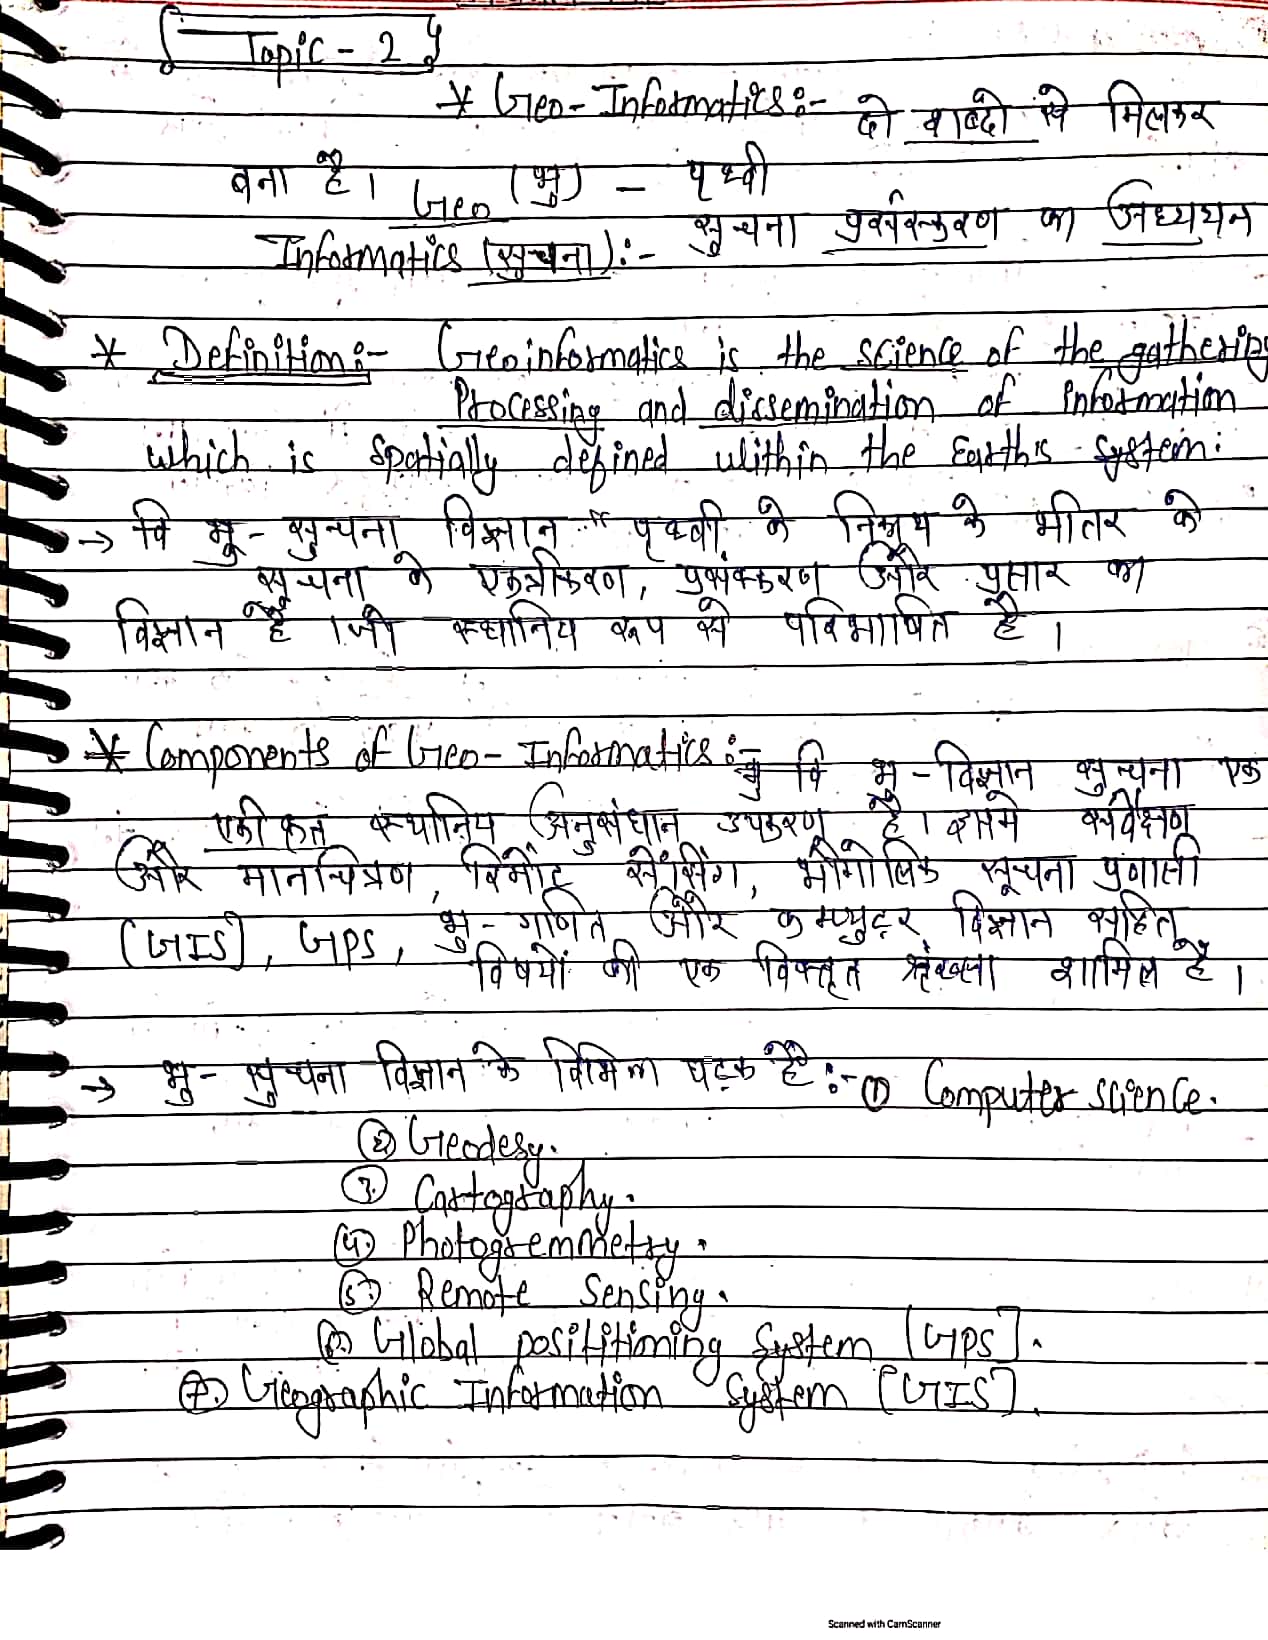 Topic - 2
* Geo-Informatics:- दो शब्दों से मिलकर
बना है। Geo (भु) - पृथ्वी
Informatics (सुचना):- सुचना का अध्ययन
* Definition:- Geoinformatics is the science of the gathering
Processing and dissemination of information
which is spatially defined within the Earth's system.
→ वि भु-सुचना विज्ञान " पृथ्वी के के भीतर की
सुचना के एकत्रीकरण, और प्रसार का
विज्ञान है। जो स्थानिय रूप से परिभाषित है।
* Components of Geo-Informatics:- भु वि भु-विज्ञान सुचना एक
एकीकृत स्थानिय अनुसंधान उपकरण है। इसमे सर्वेक्षण
और मानचित्रण, रिमोट सेंसिंग, भौगोलिक सूचना प्रणाली
[GIS], GPS, भु-गणित और कम्प्युटर विज्ञान सहित
विषयों की एक विस्तृत शामिल है।
→ भु-सुचना विज्ञान के विभिन्न घटक है:- ① Computer science.
② Geodesy.
③ Cartography.
④ Photogremmetry.
⑤ Remote Sensing.
⑥ Global posititioning System [GPS].
⑦. Geographic Information System [GIS].
Scanned with CamScanner